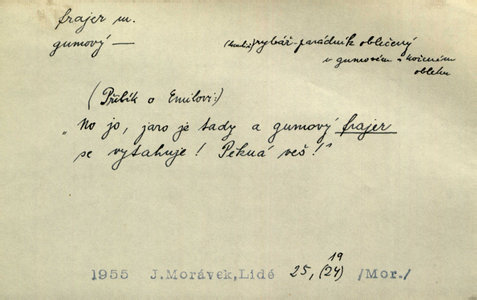 frajer m.
gumový —
rybář-parádník oblečený
v gumovém a koženém
obleku
(Přibík o Emilovi:)
„No jo, jaro je tady a gumový frajer
se vytahuje! Pekná veš!"
1955 J.Morávek,Lidé 25, (24) /Mor./
19